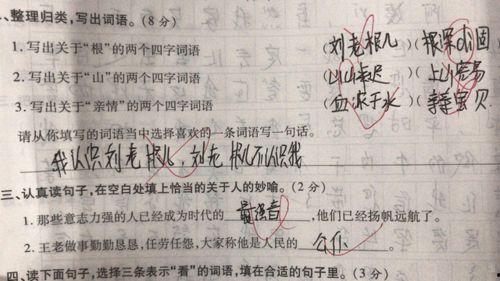 、整理归类,写出词语。(8分)
1. 写出关于“根”的两个四字词语 (刘老根儿)(根深di固)
2. 写出关于“山”的两个四字词语 (山山来迟)(上山容易)
3. 写出关于“亲情”的两个四字词语 (血浓于水)(亲亲宝贝)
请从你填写的词语当中选择喜欢的一条词语写一句话。
我认识刘老根儿,刘老根儿不认识我
三、认真读句子,在空白处填上恰当的关于人的妙喻。(2分)
1. 那些意志力强的人已经成为时代的 最强音 ,他们已经扬帆远航了。
2. 王老做事勤勤恳恳,任劳任怨,大家称他是人民的 公仆 。
四、读下面句子,选择三条表示“看”的词语,填在合适的句子里。(3分)